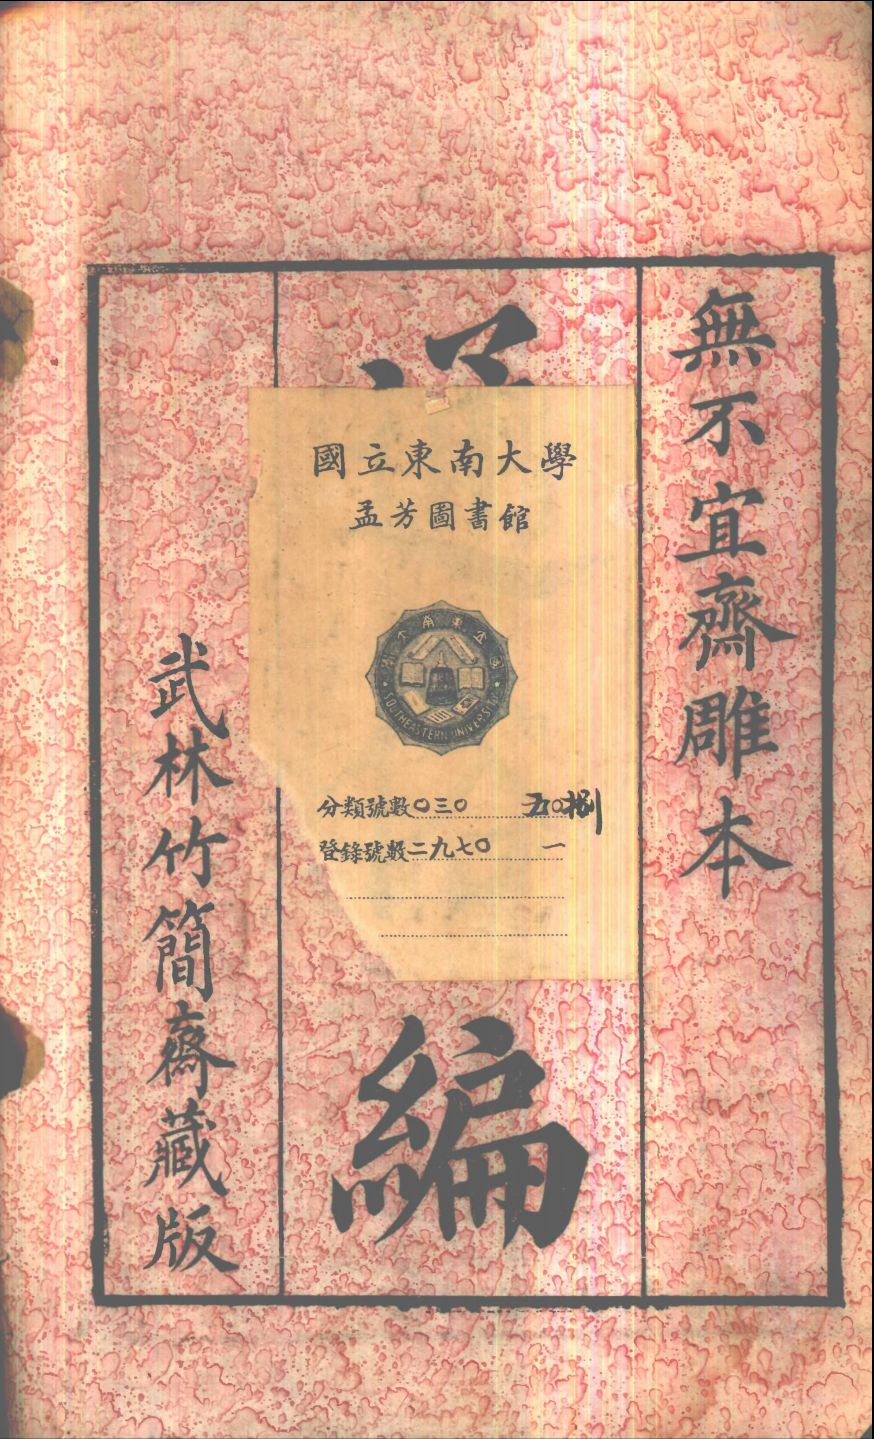 無不宜齋雕本
編
武林竹簡齋藏版
國立東南大學
孟芳圖書館
國立東南大學
SOUTHEASTERN UNIVERSITY
分類號數〇三〇 五〇
登錄號數二九七〇 一